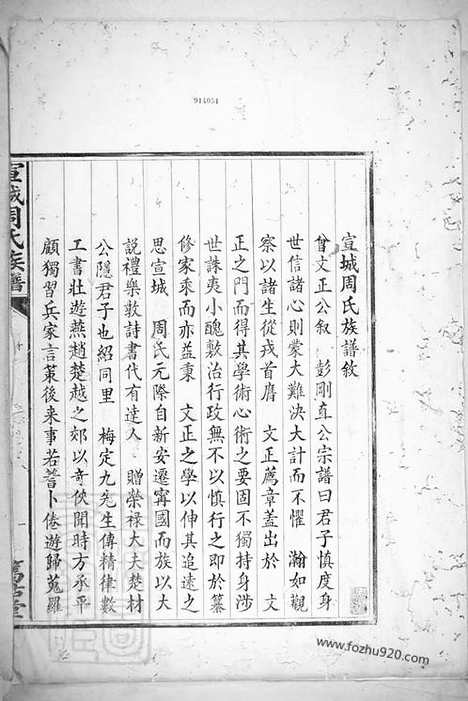 914051
宣城周氏族譜敘
曾文正公叙 彭剛直公宗譜曰君子慎度身
世信諸心則蒙大難決大計而不懼 瀚如觀
察以諸生從戎首膺 文正薦章蓋出於 文
正之門而得其學術心術之要固不獨持身涉
世誅夷小醜敷治行政無不以慎行之即於纂
修家乘而亦益秉 文正之學以伸其追遠之
思宣城 周氏元際自新安遷甯國而族以大
說禮樂敦詩書代有達人 贈榮祿大夫楚材
公隱君子也紹同里 梅定九先生傳精律數
工書壯遊燕趙楚越之郊以奇俠聞時方承平
顧獨習兵家言策後来事若蓍卜倦遊歸蒐羅
宣城周氏族譜
www.fozhu920.com